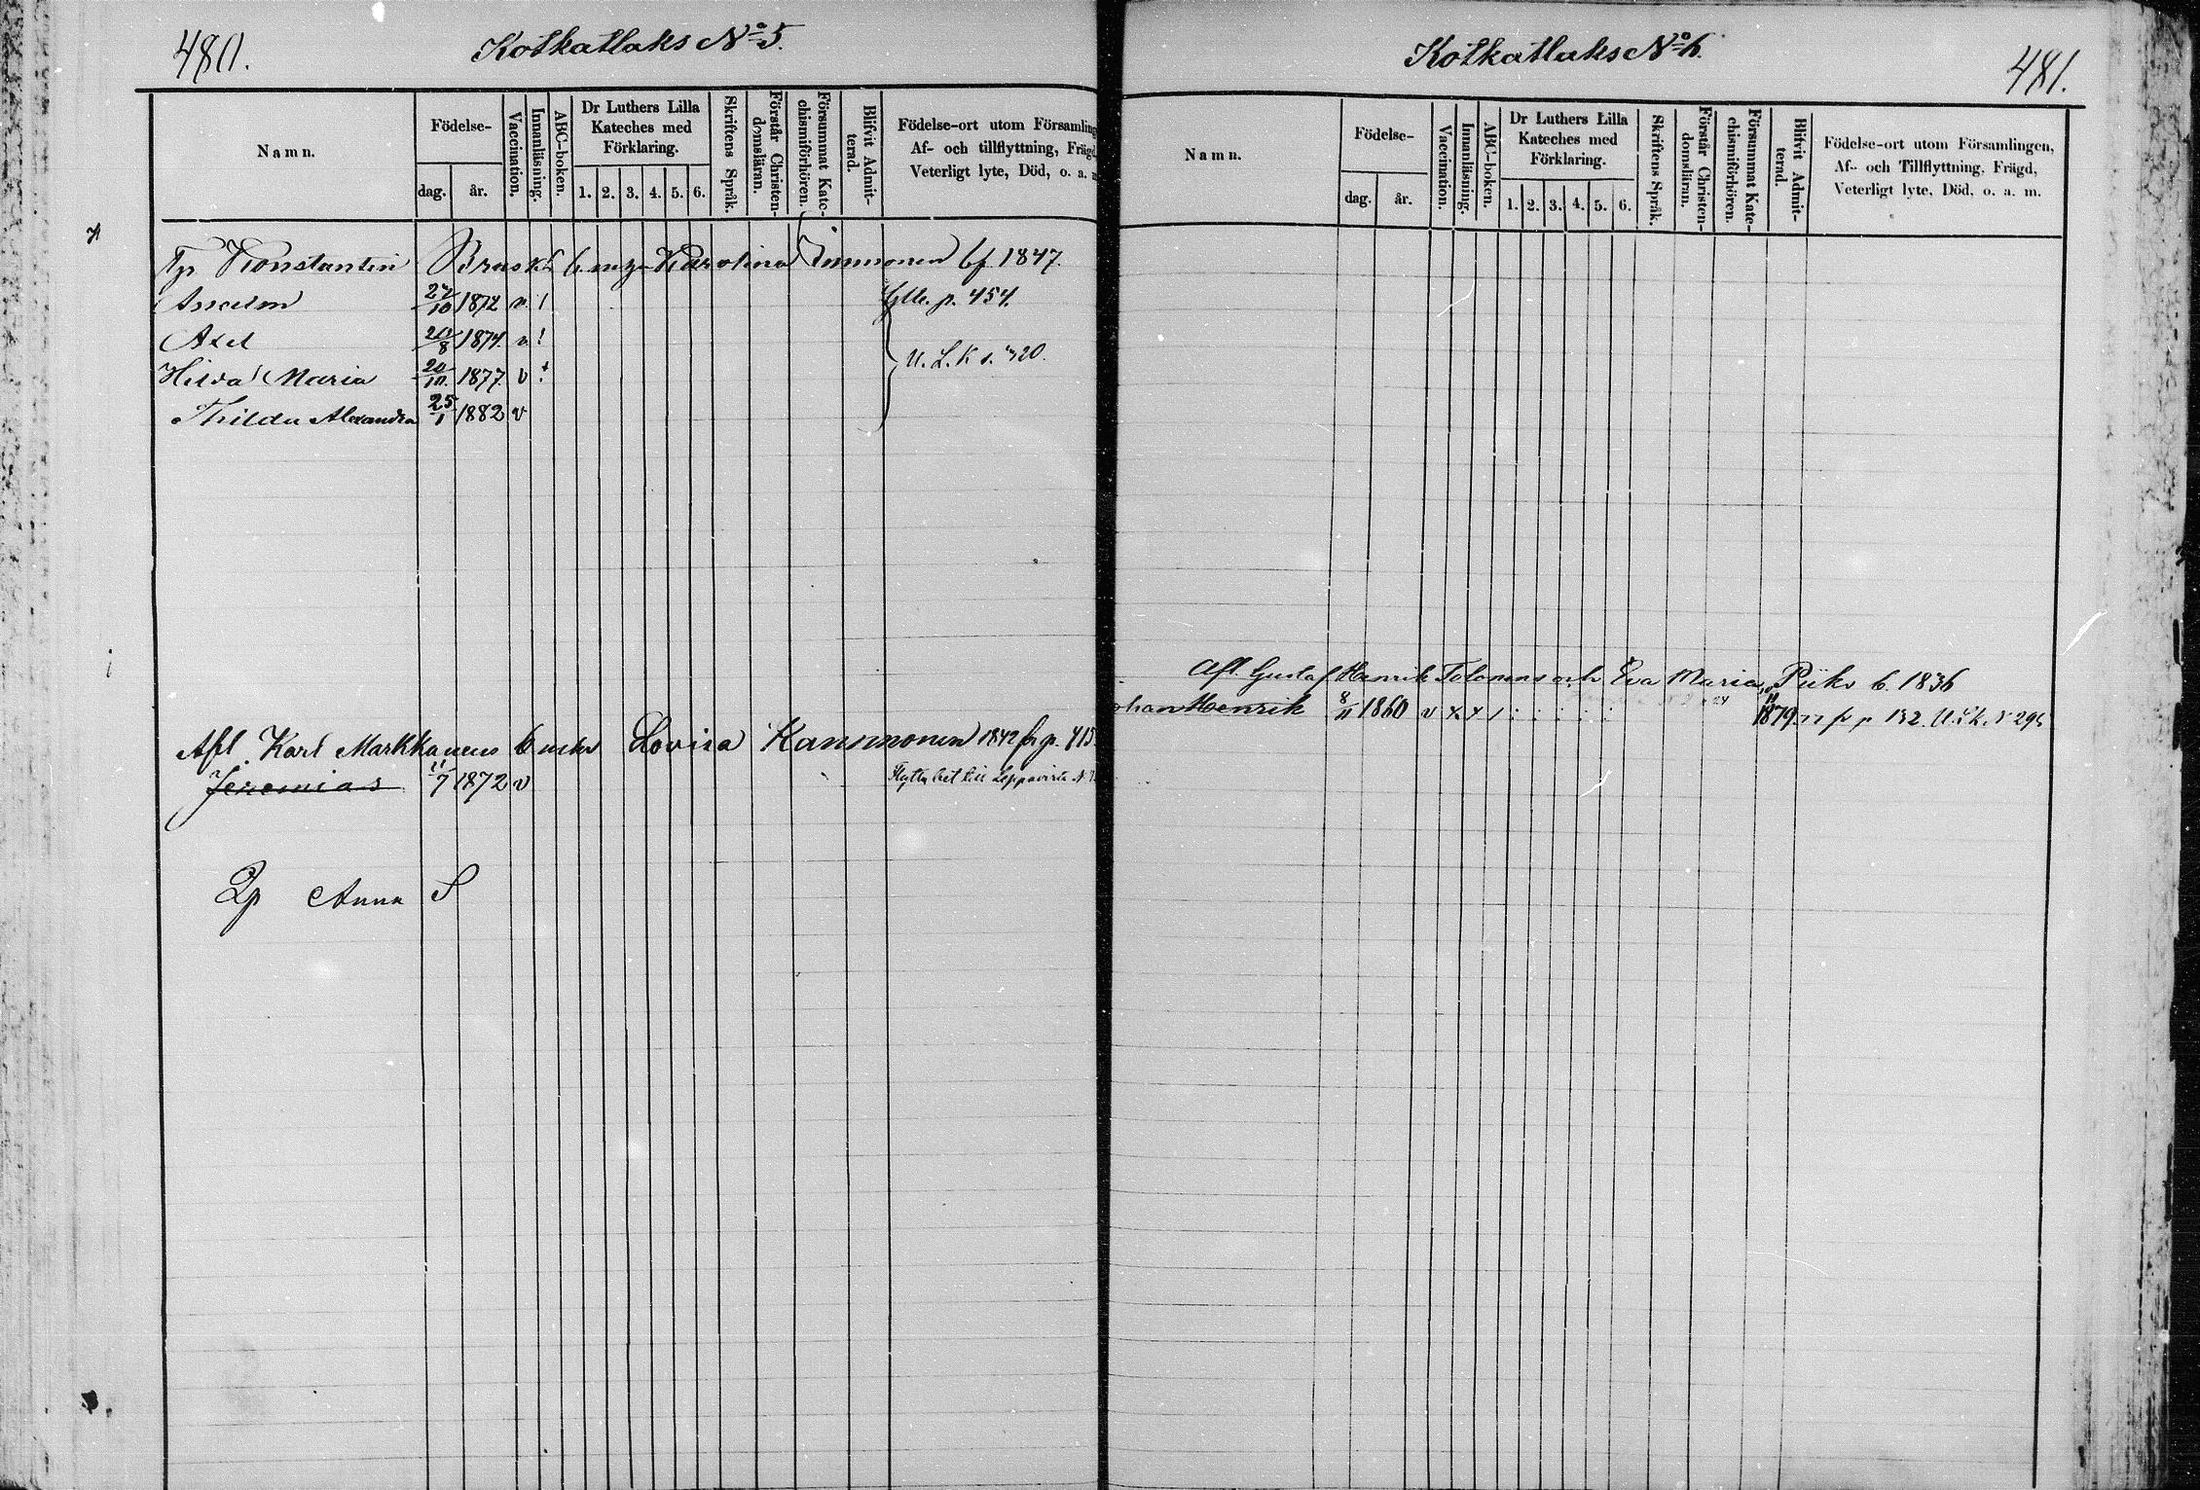 480.
Kotkatlaks No 5.
Namn.
Födelse-
dag.
år.
Vaccination.
Innanläsning.
ABC-boken.
Dr Luthers Lilla
Kateches med
Förklaring.
1. 2. 3. 4. 5. 6.
Skriftens Språk.
Förstår Christen-
domsläran.
Försummat Kate-
chismiförhören.
Blifvit Admit-
terad.
Födelse-ort utom Församling
Af- och tillflyttning, Frägd
Veterligt lyte, Död, o. a. m
Konstantin Brusk Karolina Immonen 1847.
Anselm 27/10 1872 v. p. 454.
Axel 20/8 1874 v.
U. L. K s. 420.
Hilda Maria 20/10 1877 v
Thilda Alexandra 25/1 1882 v
Afl. Karl Markkanens b Lovisa 1842 fr p. 415
Jeremias 11/7 1872 v till Leppävirta N
Anna S
481.
Kotkatlaks No 6.
Namn.
Födelse-
dag.
år.
Vaccination.
Innanläsning.
ABC-boken.
Dr Luthers Lilla
Kateches med
Förklaring.
1. 2. 3. 4. 5. 6.
Skriftens Språk.
Förstår Christen-
domsläran.
Försummat Kate-
chismiförhören.
Blifvit Admit-
terad.
Födelse-ort utom Församlingen,
Af- och Tillflyttning, Frägd,
Veterligt lyte, Död. o. a. m.
Afl. Gustaf Henrik Tolonens och Eva Maria Piiks b. 1836
ohan Henrik 8/11 1860 v x x 1879 77 fr p 132.